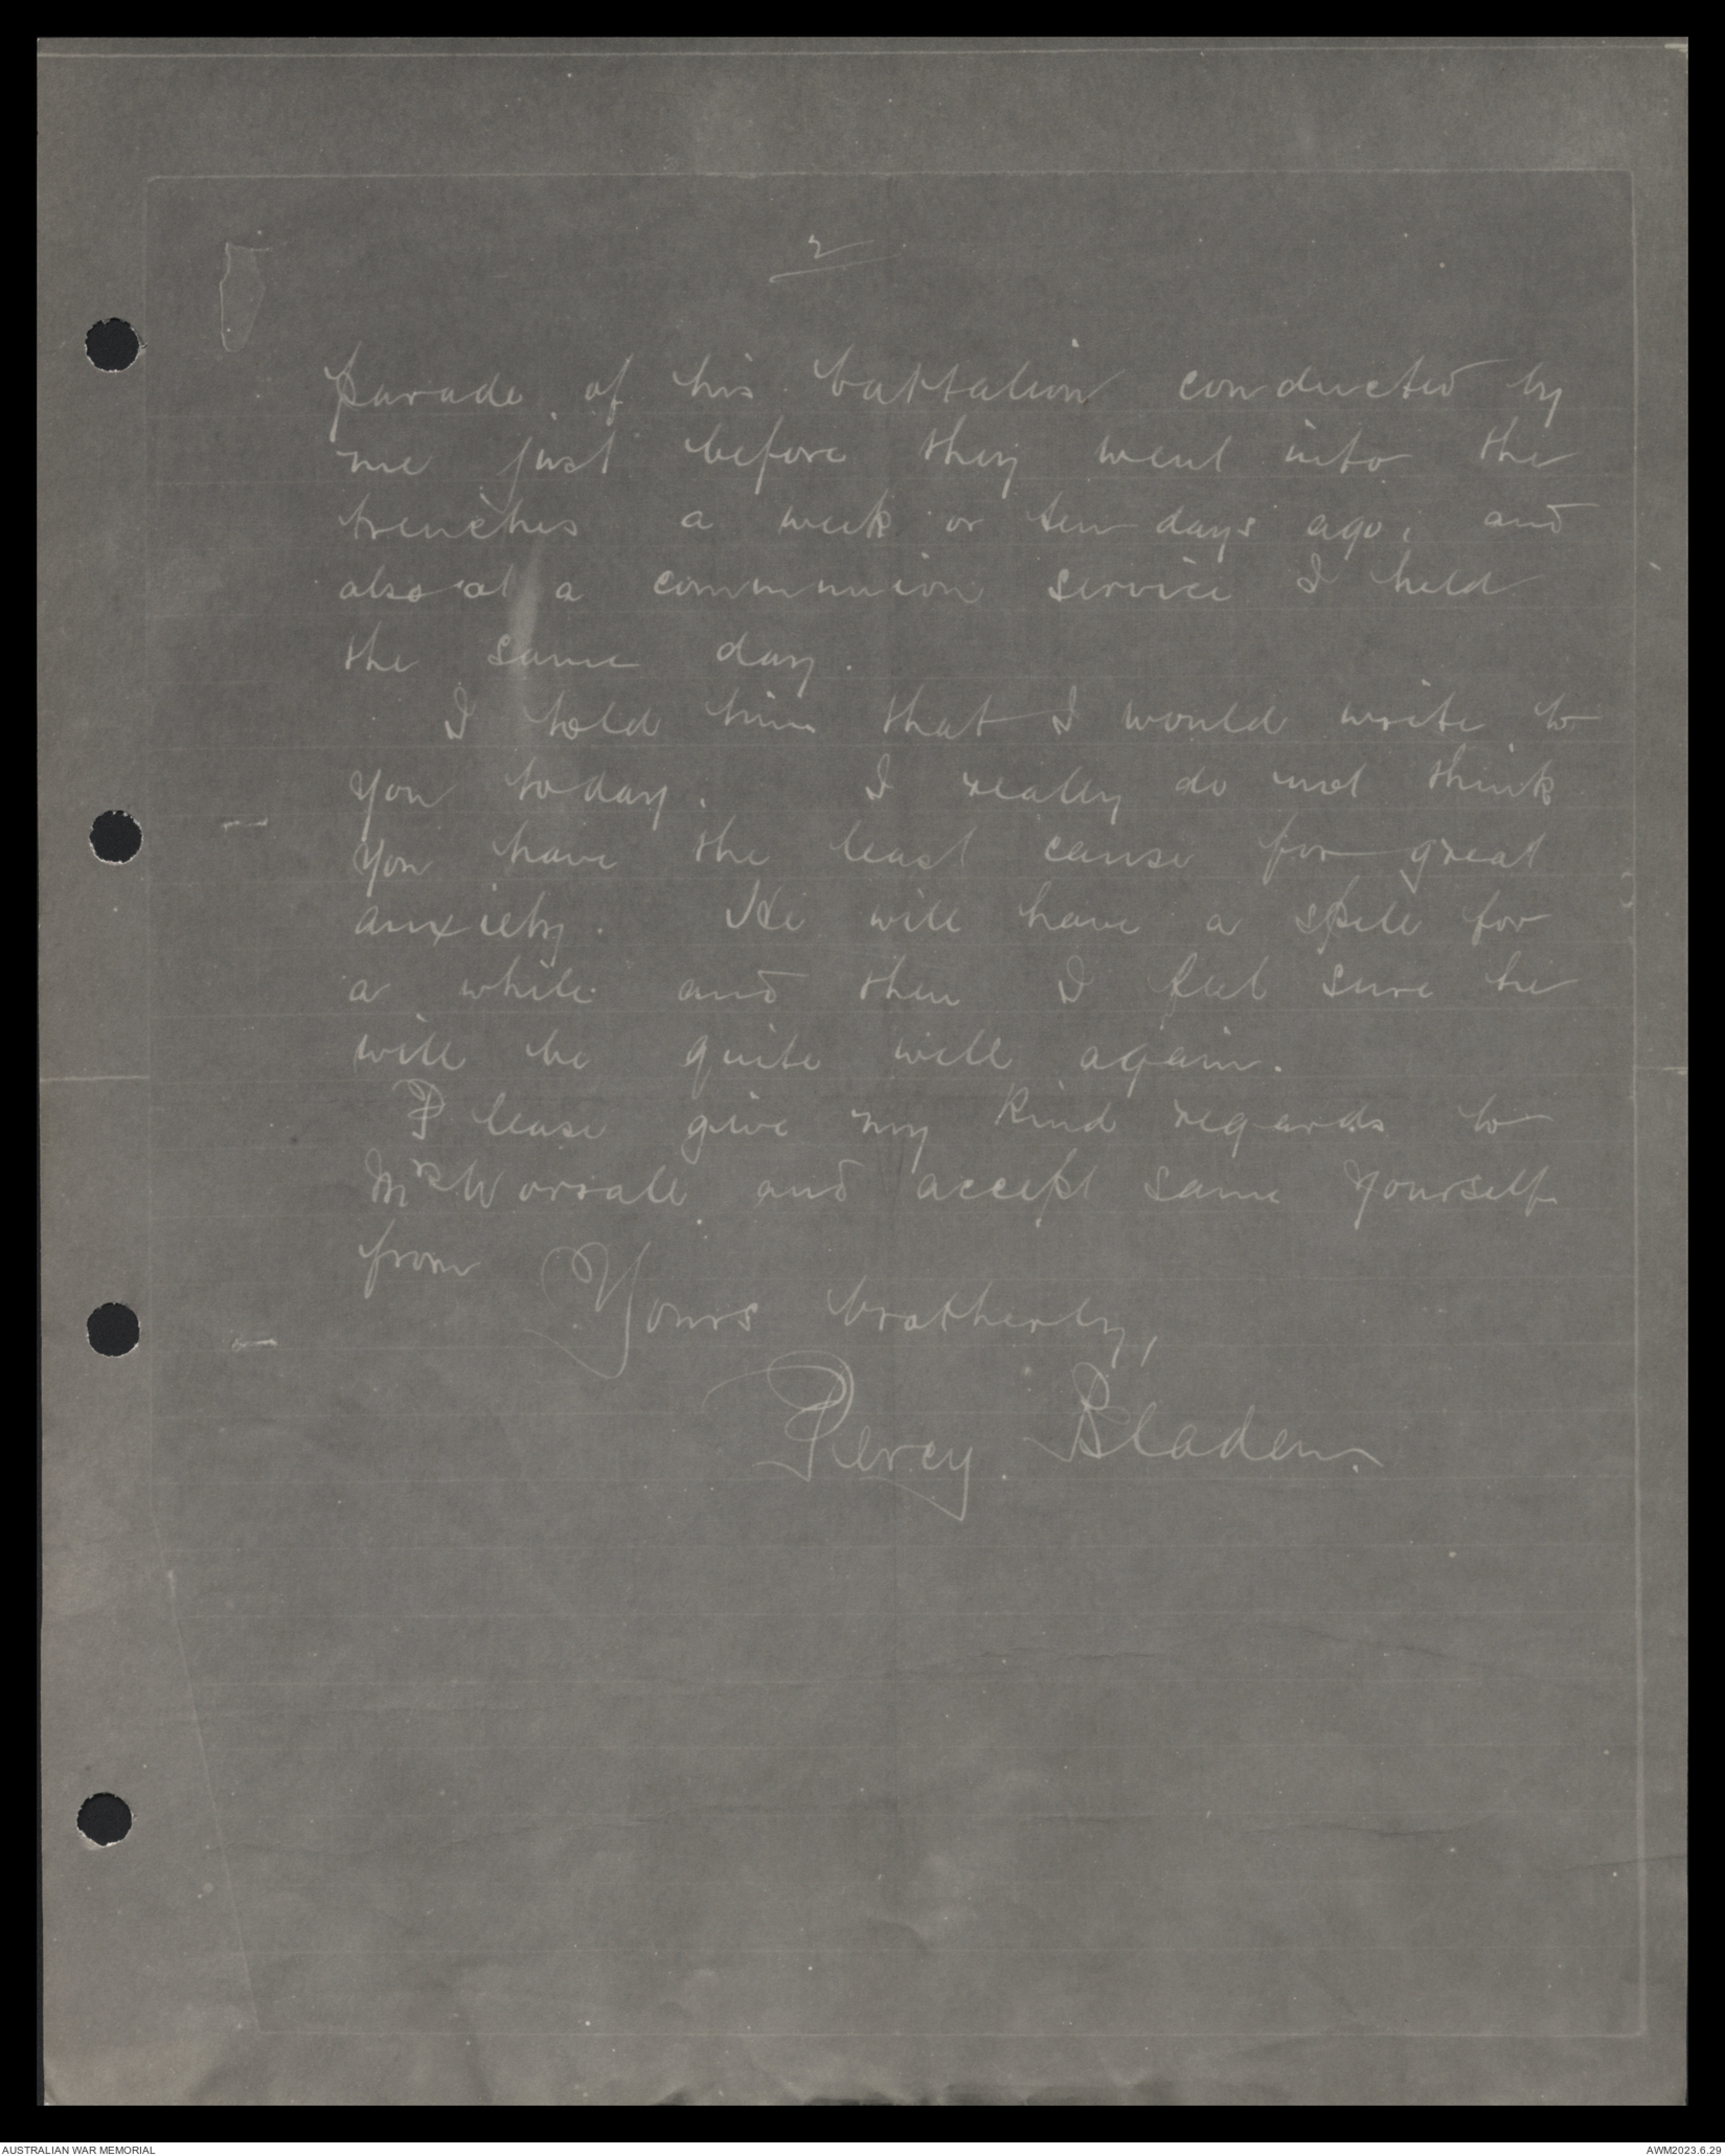 2
parade of his battalion conducted by
me just before they went into the
trenches a week or ten days ago, and
also at a communion service I held
the same day.
I told him that I would write to
you today. I really do not think
you have the least cause for great
anxiety. He will have a spell for
a while and then I feel sure he
will be quite well again.
Please give my kind regards to
Mr Worrall and accept same yourself
from
Yours brotherly,
Percy Bladen.
AUSTRALIAN WAR MEMORIAL AWM2023.6.29